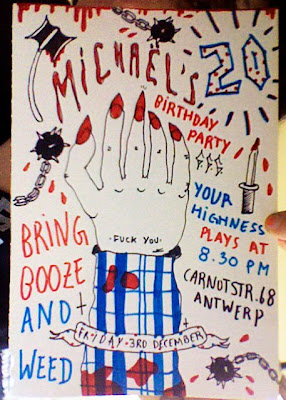 MICHAEL'S
20
BIRTHDAY
PARTY
YOUR
HIGHNESS
PLAYS AT
8.30 PM
CARNOTSTR.68
ANTWERP
FUCK YOU
BRING
BOOZE
AND
WEED
FRYDAY 3RD DECEMBER